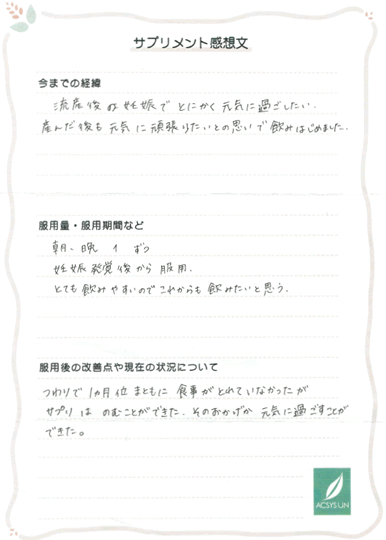 サプリメント感想文
今までの経緯
流産後の妊娠でとにかく元気に過ごしたい.
産んだ後も元気に頑張りたいとの思いで飲みはじめました.
服用量・服用期間など
朝、晩 1 ずつ
妊娠発覚後から服用.
とても飲みやすいのでこれからも飲みたいと思う.
服用後の改善点や現在の状況について
つわりで1ヵ月位まともに食事がとれていなかったが
サプリはのむことができた.そのおかげか元気に過ごすことが
できた。
ACSYS UN